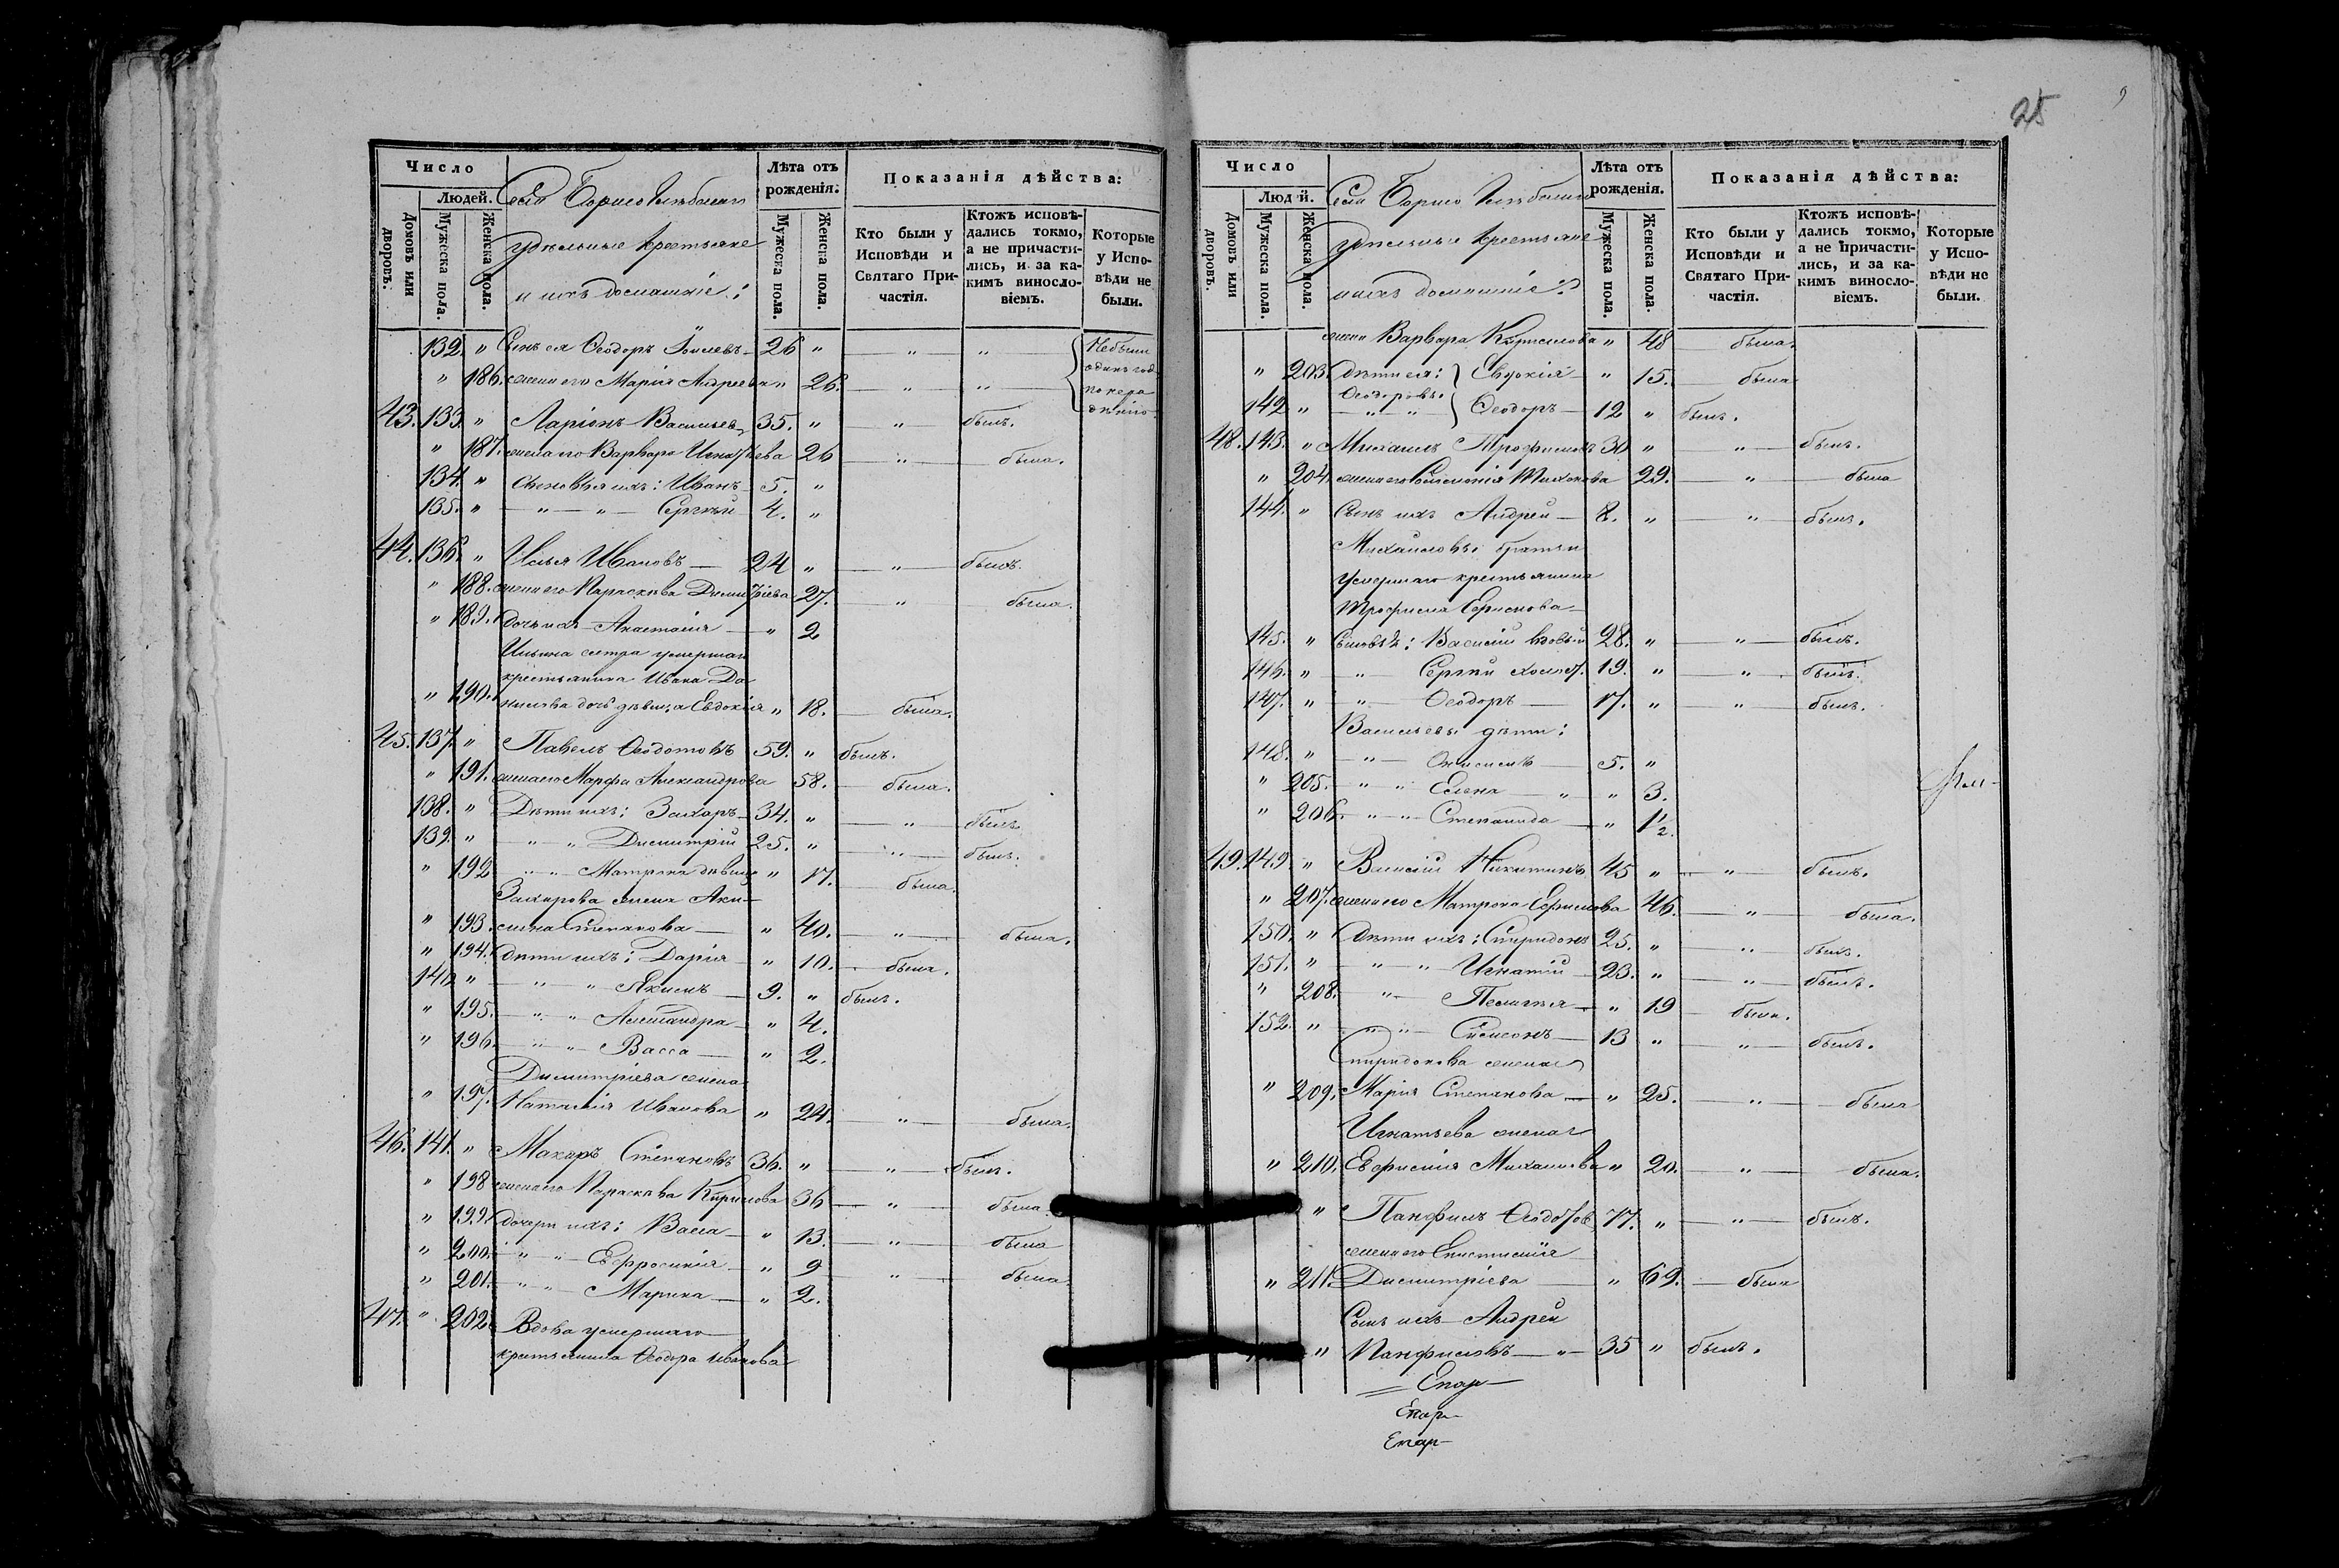 Число
Людей.
Домовъ или дворовъ.
Мужеска пола.
Женска пола.
Села Борисоглѣбскаго
удѣльные крестьяне
и ихъ домашніе:
Лѣта отъ рожденія.
Мужеска пола.
Женска пола.
Показанія дѣйства:
Кто были у Исповѣди и Святаго Причастія.
Ктожъ исповѣдались токмо, а не причастились, и за какимъ винословіемъ.
Которые у Исповѣди не были.
132. " Сынъ ея Ѳеодоръ 26 " " " Небыли
" 186. жена его Марія Андреева " 26. " " одинъ год
43. 133. " Ларіонъ Васильев 35. " " былъ.
" 187. жена его Варвара Игнатіева 26 " была.
134. " Сыновья ихъ: Иванъ 5. "
135. " " " Сергѣй 4. "
44. 136. " Илья Ивановъ 24 " " былъ.
" 188. жена его Параскева Димитріева 27. " была.
" 189. дочь ихъ Анастасія " 2
Ильина сестра умершаго
крестьянина Ивана Да
" 190. нилова дочь дѣвица Евдокія " 18. была.
45. 137. " Павелъ Ѳеодотовъ 59. " былъ.
" 191. жена его Марфа Александрова 58. была.
138. " Дѣти ихъ: Захаръ 34. " " былъ.
139. " " " Димитрій 25. " " былъ.
" 192 " " Матрона дѣвица " 17. была.
Захарова жена Аки-
" 193. лина Степанова " 40. " была.
" 194. дѣти ихъ: Дарія " 10. была.
140 " " " Якимъ 9. " былъ.
" 195. " " Александра " 4.
" 196. " " Васса " 2.
Димитріева жена
" 197. Наталія Иванова " 24. " была.
46. 141. " Макаръ Степановъ 36. " " былъ.
" 198 жена его Параскева Кирилова 36 " была.
" 199 дочери ихъ: Васса " 13. " была
" 200. " " Евфросинія " 9 " была.
" 201. " " Марина " 2.
47. " 202. Вдова умершаго
крестьянина Ѳеодора Иванова
25
Число
Людей.
Домовъ или дворовъ.
Мужеска пола.
Женска пола.
Села Борисоглѣбскаго
удѣльные крестьяне
и ихъ домашніе:
Лѣта отъ рожденія.
Мужеска пола.
Женска пола.
Показанія дѣйства:
Кто были у Исповѣди и Святаго Причастія.
Ктожъ исповѣдались токмо, а не причастились, и за какимъ винословіемъ.
Которые у Исповѣди не были.
жена Варвара Кирилова " 48 была.
" 203. дѣти ея: Евдокія " 15. была
Ѳеодоровы
142 " " " Ѳеодоръ 12 " былъ.
48. 143. " Михаилъ Трофимовъ 30 " " былъ.
" 204. жена его Соломонія Тихонова 29. " была
144. " Сынъ ихъ Андрей 8. " " былъ.
Михайловы братья
умершаго крестьянина
Трофима Ефимова
145. " Сыновья: Василій 28. " " былъ.
146. " " Сергѣй холост. 19. " " былъ.
147. " " Ѳеодоръ 17. " " былъ.
Васильевы дѣти:
148. " " Онисимъ 5. "
" 205. " " Елена " " 3.
" 206. " " Степанида " 1½.
49. 149. " Василій Никитинъ 45 " " былъ.
" 207. жена его Матрона Ефимова 46. " была.
150. " Дѣти ихъ: Спиридонъ 25. " " былъ.
151. " " " Игнатій 23. " " былъ.
" 208. " Пелагея " 19 была.
152. " " " Симеонъ 13 " " былъ.
Спиридонова жена
" 209. Марія Степанова " 25. " была
Игнатьева жена
" 210. Евфимія Михайлова " 20. " была.
" Панфилъ Ѳеодотов 77. " " былъ.
жена его
" 211. Димитріева " 69. была
Сынъ ихъ Андрей
" Панфиловъ " 35 " былъ.